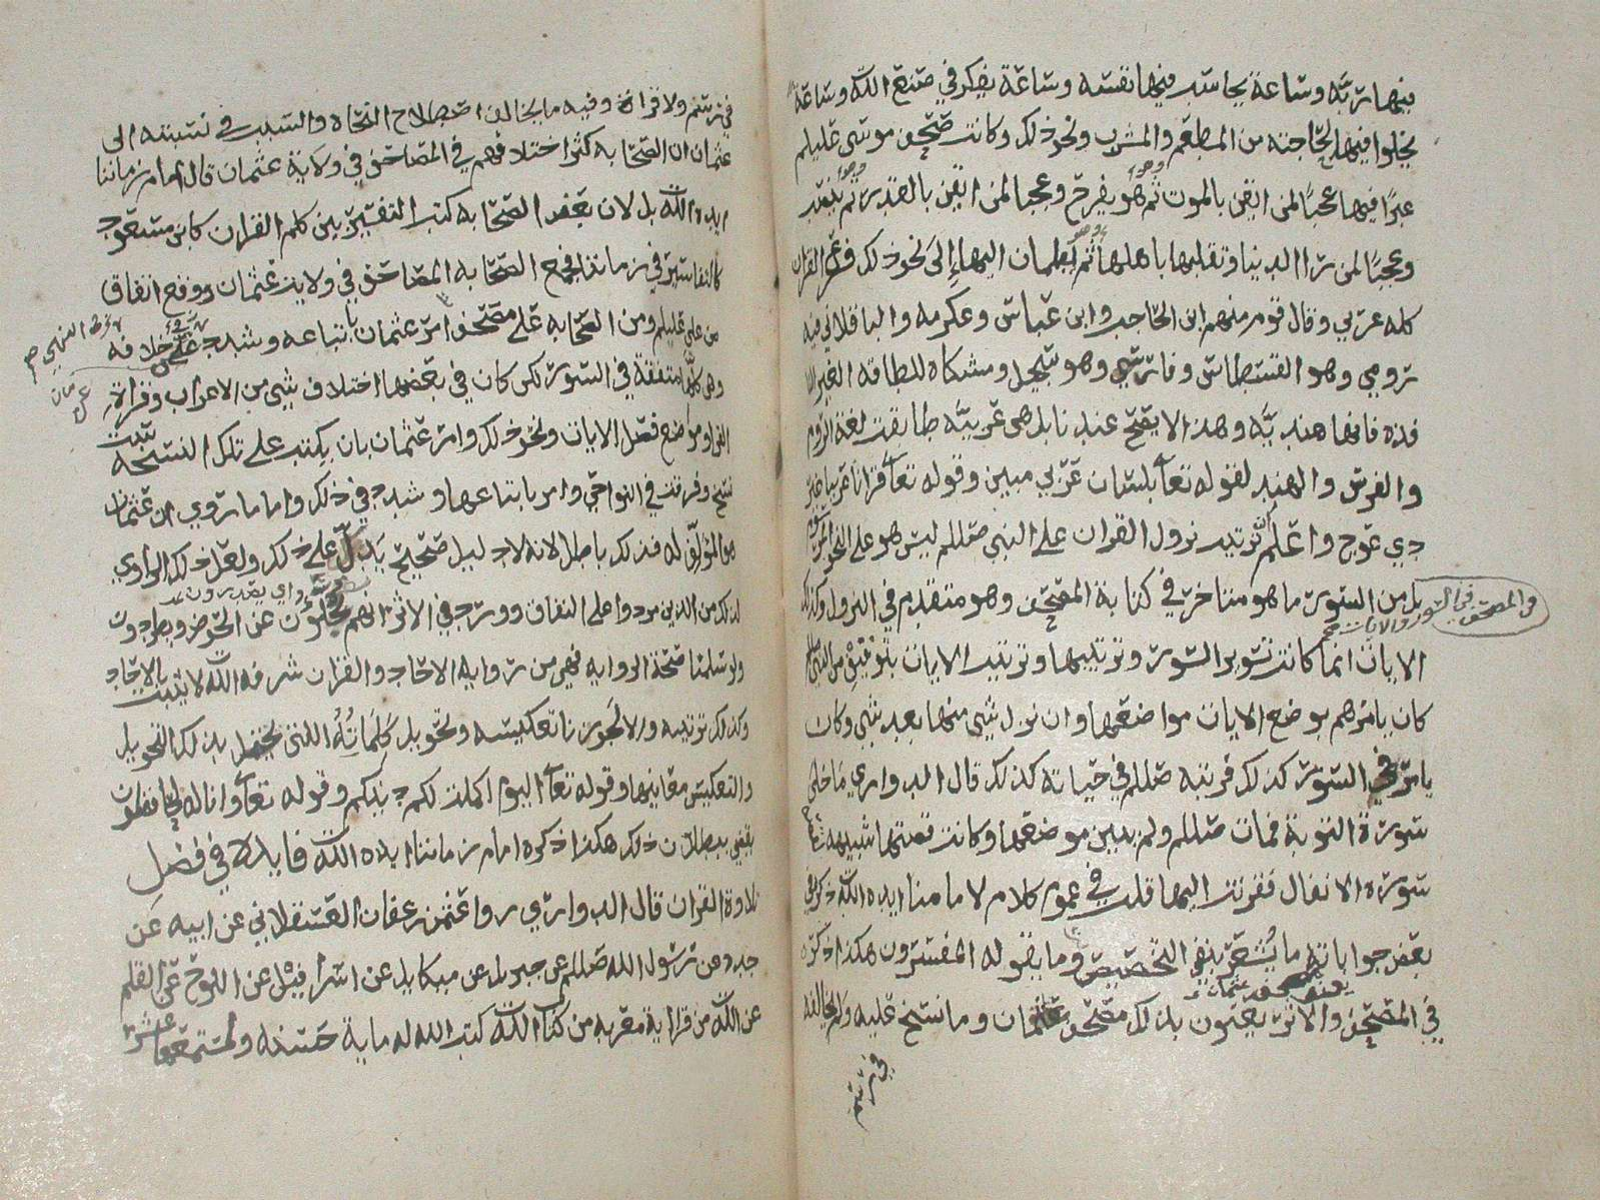 فيها ربَّه وساعة يحاسب فيها نفسه وساعة يفكر في صنع الله وساعة
يخلوا فيها لحاجته من المطعم والمشرب ونحو ذلك وكانت صحف موسى عليلم
عبرًا فيها عجبًا لمن ايقن بالموت ثم هو يفرح وعجبا لمن ايقن بالقدر ثم
وعجبًا لمن راا الدنيا وتقلبها باهلها ثم اطمان اليها إلى نحو ذلك فرع القران
كله عربي وقال قوم منهم ابن الحاجب وابن عباس وعكرمه والباقلاني فيه
رومي وهو القسطاس وفارسي وهو سجيل ومشكاه للطاقه الغير
فذه فانها هنديَّه وهذا لا يصح عندنا بل هي عربيَّه طابقت لغة الروم
والفرس والهند لقوله تعا بلسان عَربي مبين وقوله تعا قرانا عربيا غير
ذي عوج واعلم ان ترتيب نزول القران على النبي صللم ليس هو على النحو
في المصحف
بل من السور ما هو متاخر في كتابة المصحف وهو متقدم في النزول وكذلك
الايات انما كانت تسوير السور وترتيبها وترتيب الايات بتوقيفٍ من النبي
كان يامرهم بوضع الايات مواضعها وان نزل شي منها بعد شي وكان
يامر في السور كذلك فرتبه صللم في حياته كذلك قال الدواري ما خلى
سورة التوبة فمات صللم ولم يبين موضعها وكانت قصتها شبيهه
سوره الانفال فقرنت اليها قلت في عموم كلام لامامنا ايده الله ذكره في
بعض جواباته ما يُشعر بنفي التخصيص وما يقوله المفسرون هكذا ذكره
في المصحف والاثر يعنون بذلك مصحف عثمان وما نسخ عليه ولم يخالفه
في رسم
في رسم ولا قراة وفيه ما يخالف اصطلاح النحاه والسبب في نسبته الى
عثمان ان الصحابه كثر اختلافهم في المصاحف في ولاية عثمان قال امام زماننا
ايده الله بل لان بعض الصحابه كتب التفسير بين كلم القران كابن مسعود
كالتفاسير في زماننا فجمع الصحابه المصاحف في ولاية عثمان ووقع اتفاق
من علي عليلم ومن الصحابه على مصحف امر عثمان باتباعه وشدد على خلافه
وهي كلها متفقة في السور لكن كان في بعضها اختلاف شي من الاعراب وقراة
او مواضع فصل الايات ونحو ذلك وامر عثمان بان يكتب على تلك النسخة
نسخ وفرقت في النواحي وامر باتباعها وشدد في ذلك واما ما روي ان عثمان
هو المؤلف له فذلك باطل لانه لا دليل صحيح يدل على ذلك ولعل ذلك الراوي
لذلك من الذين مردوا على النفاق وورد في الاثر انهم يُجلون عن الحوض ويطردون
ولو سلمنا صحة الروايه فهي من روايه الاحاد والقران شرفه الله لا يثبت بالاحاد
وكذلك ترتيبه ولا تجوزنا تعكيسه وتحويل كلماته اللتى يختل بذلك التحويل
والتعكيس معانيها وقوله تعا اليوم اكملت لكم دينكم وقوله تعا وانا له لحافظون
يقضي ببطلان ذلك هكذا ذكره امام زماننا ايده الله فايده في فضل
تلاوة القران قال الدواري روا عثمن عفان العسقلاني عن ابيه عن
جده عن رسول الله صللم عن جبريل عن ميكايل عن اسرافيل عن اللوح عن القلم
عن الله من قرا اية معربه من كتاب الله كتب الله له ماية حسنه ولمستمعها عشر